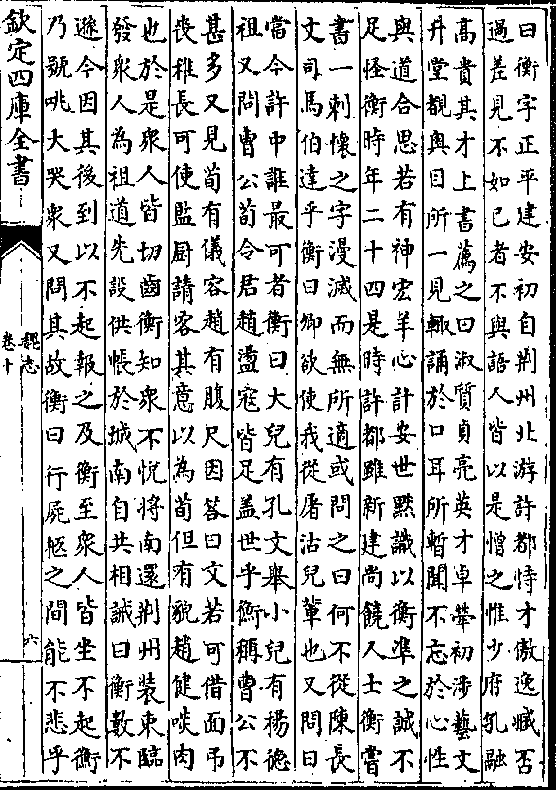 曰衡字正平建安初自荆州北游許都恃才傲逸臧否
過差見不如已者不與語人皆以是憎之惟少府孔融
高貴其才上書薦之曰淑質貞亮英才卓犖初涉藝文
升堂覩奥目所一見輒誦於口耳所暫聞不忘於心性
與道合思若有神宏羊心計安世黙識以衡准之誠不
足怪衡時年二十四是時許都雖新建尚饒人士衡嘗
書一刺懷之字漫滅而無所適或問之曰何不從陳長
文司馬伯達乎衡曰卿欲使我從屠沽兒軰也又問曰
當今許中誰最可者衡曰大兒有孔文舉小兒有楊徳
祖又問曹公荀令居趙盪寇皆足蓋世乎衡稱曹公不
甚多又見荀有儀容趙有腹尺因答曰文若可借面弔
喪稚長可使監厨請客其意以為荀但有貌趙健啖肉
也於是衆人皆切齒衡知衆不悦將南還荆州装束臨
發衆人為祖道先設供帳於城南自共相誡曰衡數不
遜今因其後到以不起報之及衡至衆人皆坐不起衡
乃號咷大哭衆又問其故衡曰行屍柩之間能不悲乎
欽定四庫全書
魏志
卷十
六